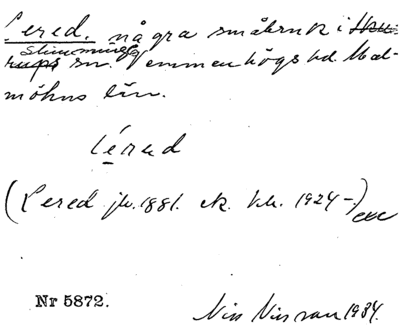 Lered, några småbruk i
Slimminge sn. Vemmenhögs hd. Mal-
möhus län.
léred
(Lered jb. 1881. ek. bl. 1924-)
Nr 5872.
Nils Nilsson 1934.